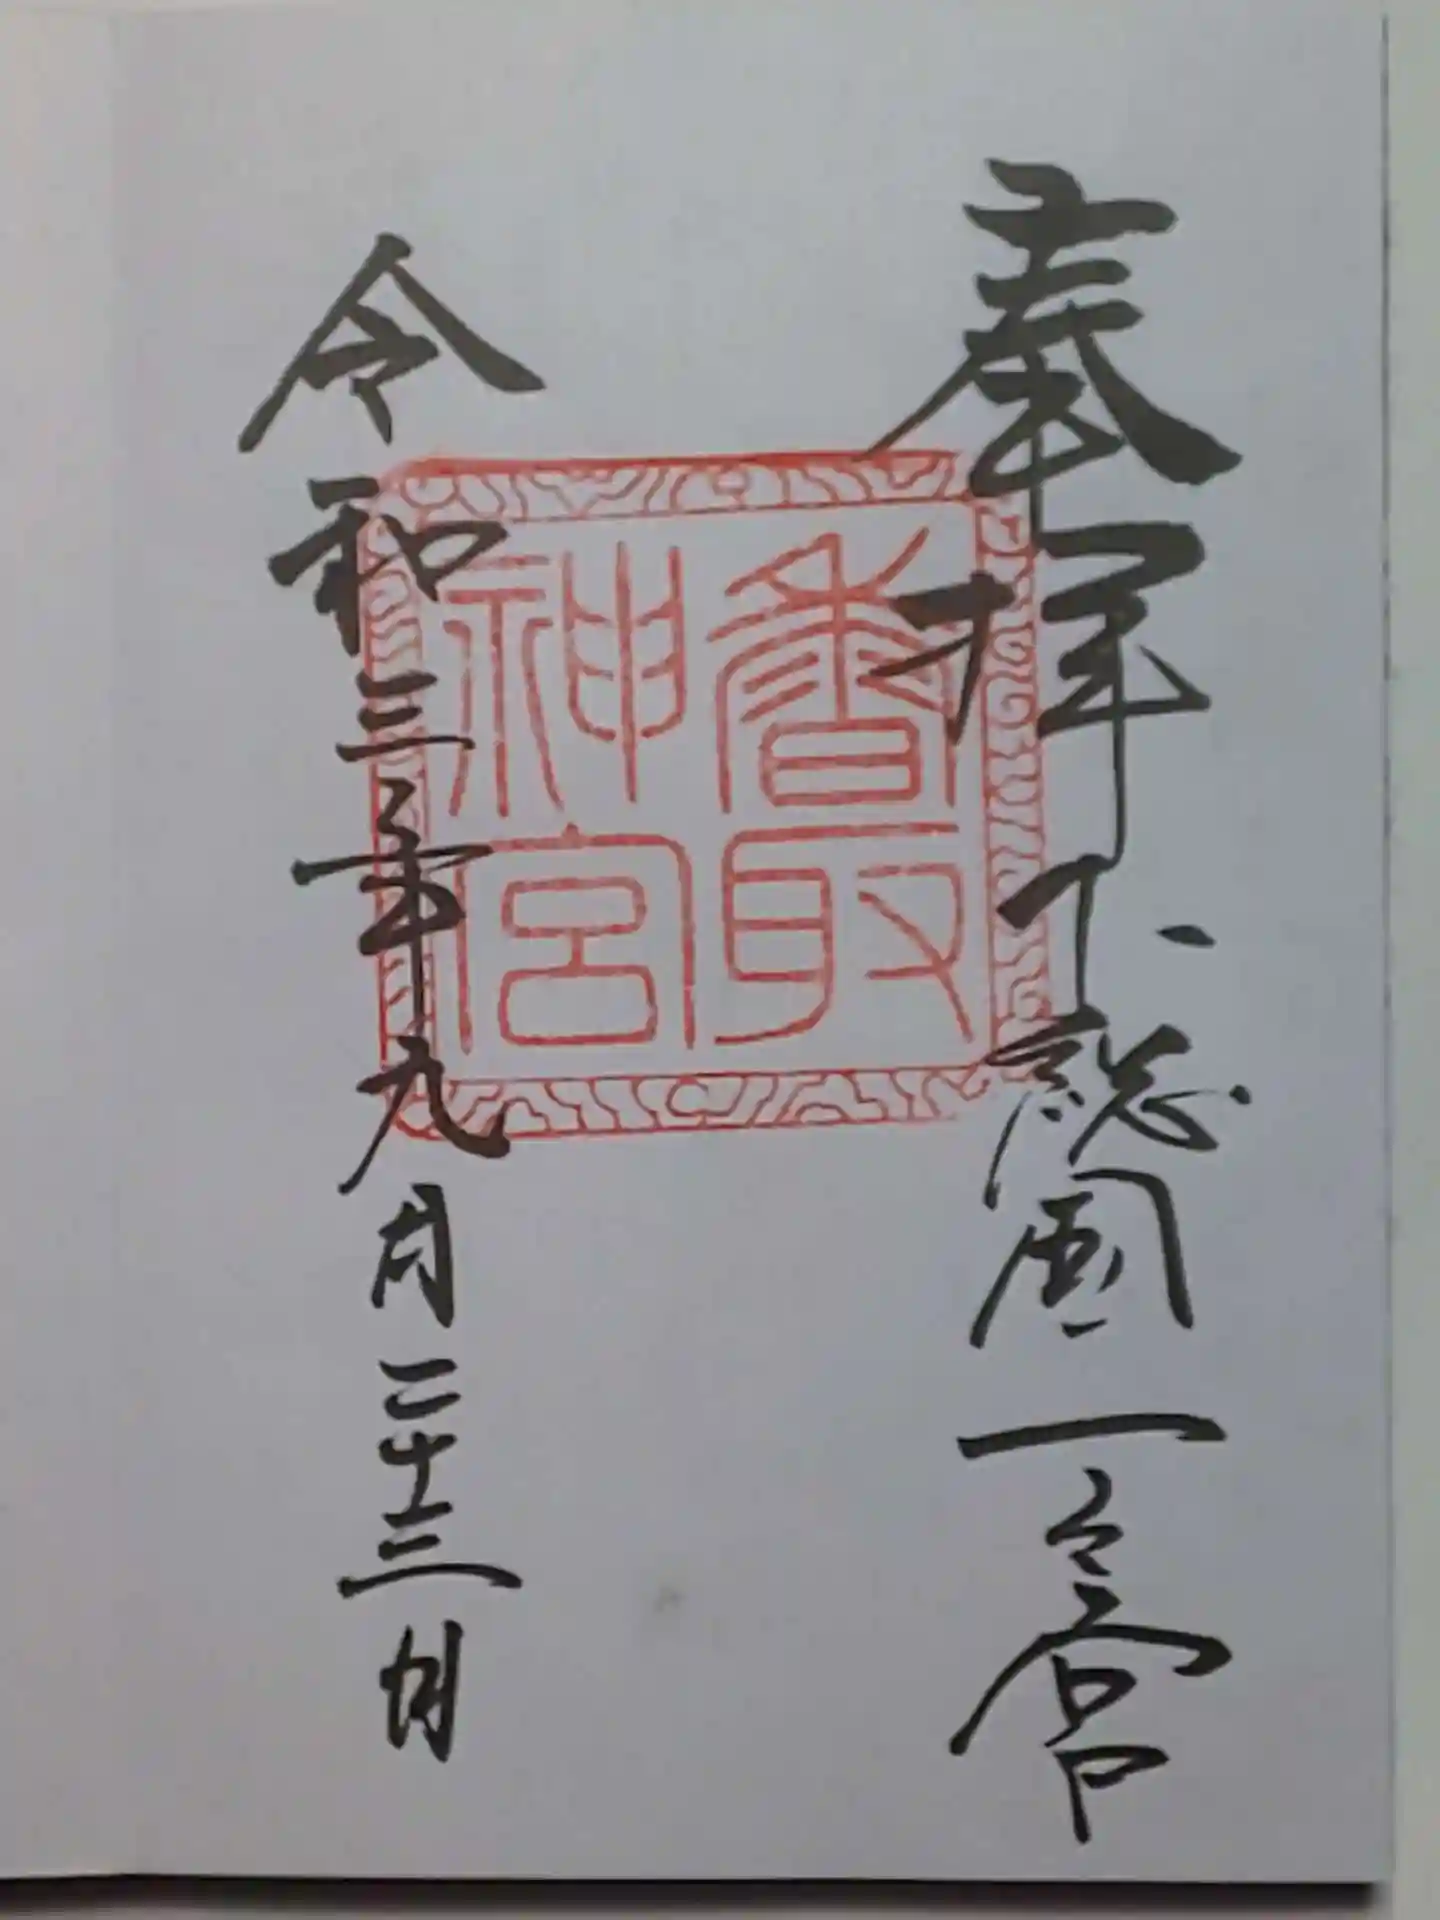 奉拝 下総国一之宮
香取
神宮
令和三年九月二十三日